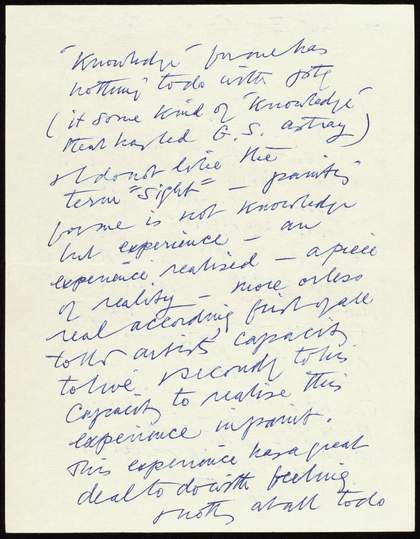 "Knowledge" for me has
nothing to do with
(it some kind of "Knowledge"
that has led G.S. astray)
I do not like the
term "Sight" – painting
for me is not Knowledge
but experience – an
experience realised – a piece
of reality – more or less
real according first of all
to the artist's capacity
to live secondly to his
capacity to realise this
experience in paint.
This experience has a great
deal to do with feeling
at all to do